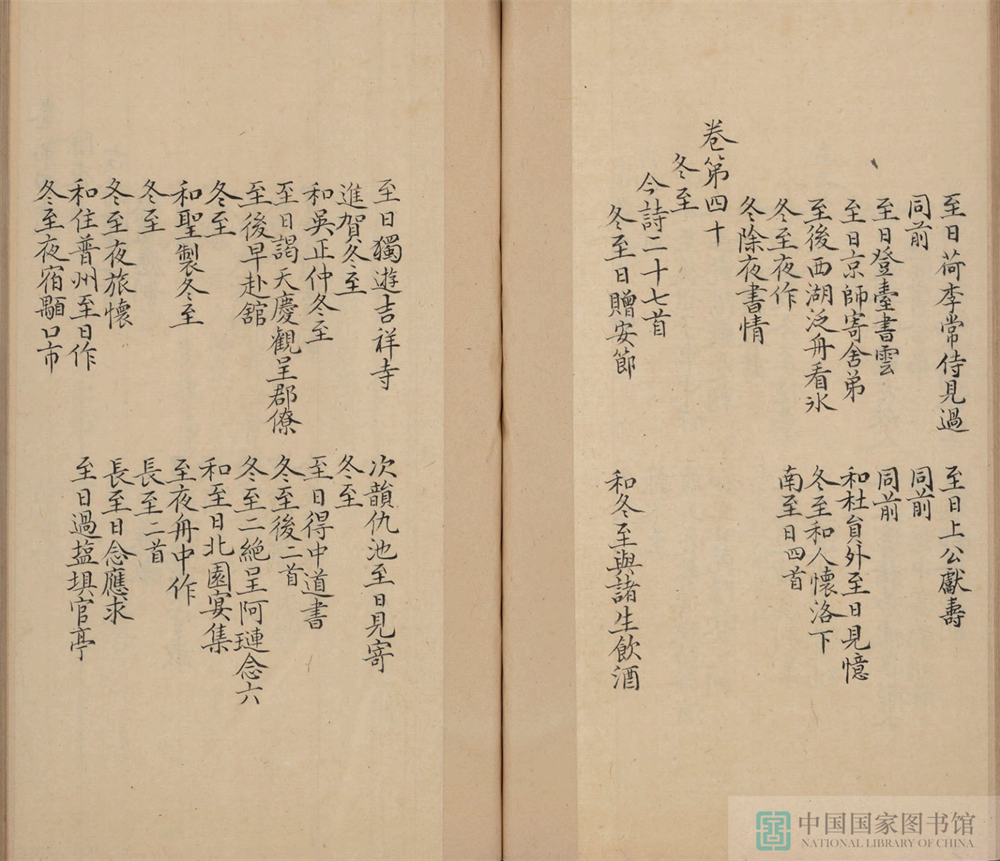 至日荷李常侍見過
至日上公獻壽
同前
同前
至日登臺書雲
同前
至日京師寄舍弟
和杜員外至日見憶
至後西湖泛舟看氷
冬至和人懷洛下
冬至夜作
南至日四首
冬除夜書情
卷第四十
冬至
今詩二十七首
冬至日贈安節
和冬至與諸生飲酒
至日獨遊吉祥寺
次韻仇池至日見寄
進賀冬至
冬至
和吳正仲冬至
至日得中道書
至日謁天慶觀呈郡僚
冬至後二首
至後早赴舘
冬至二絕呈阿璉念六
冬至
和至日北園宴集
和聖製冬至
至夜舟中作
冬至
長至二首
冬至夜旅懷
長至日念應求
和住普州至日作
至日過塩埧官亭
冬至夜宿顒口市
中国国家图书馆
NATIONAL LIBRARY OF CHINA